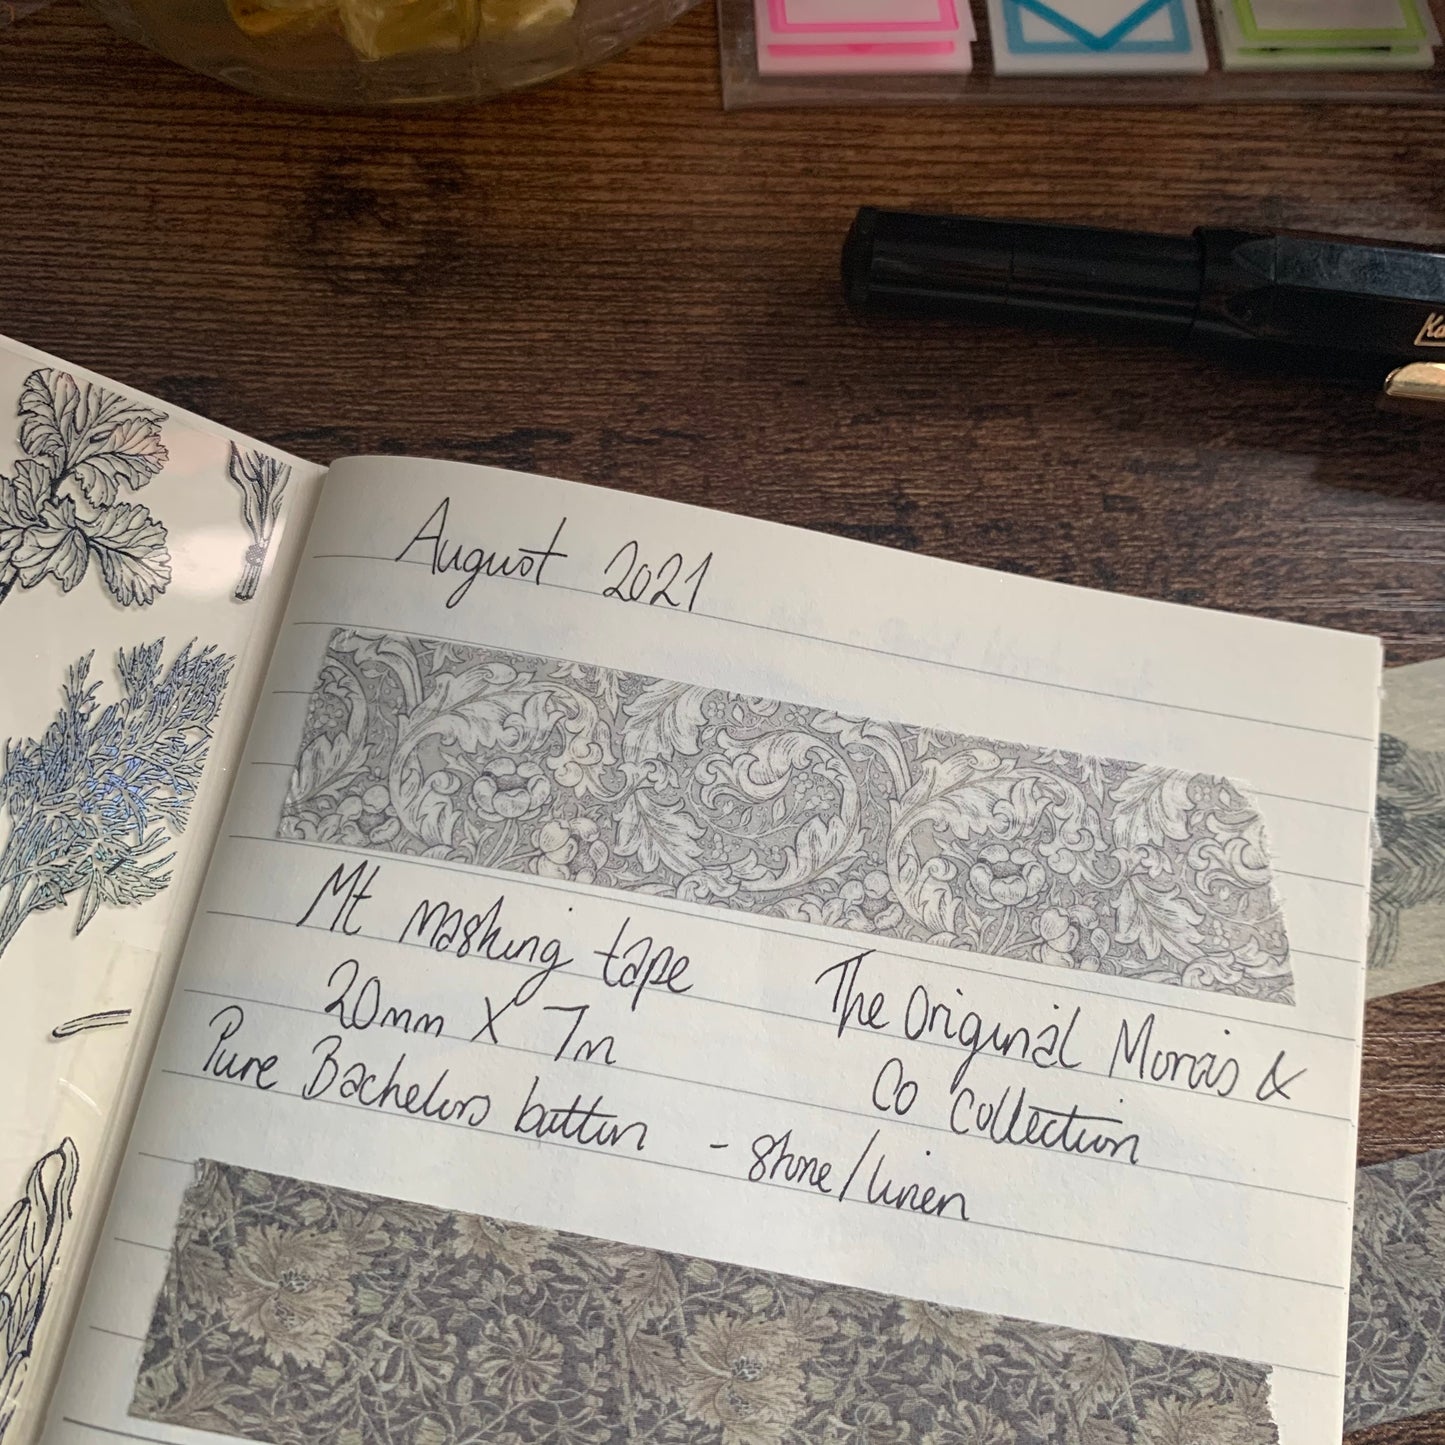 August 2021
Mt mashing tape
20mm X 7m
The Original Morris &
Co Collection
Pure Bachelors button - Stone/linen